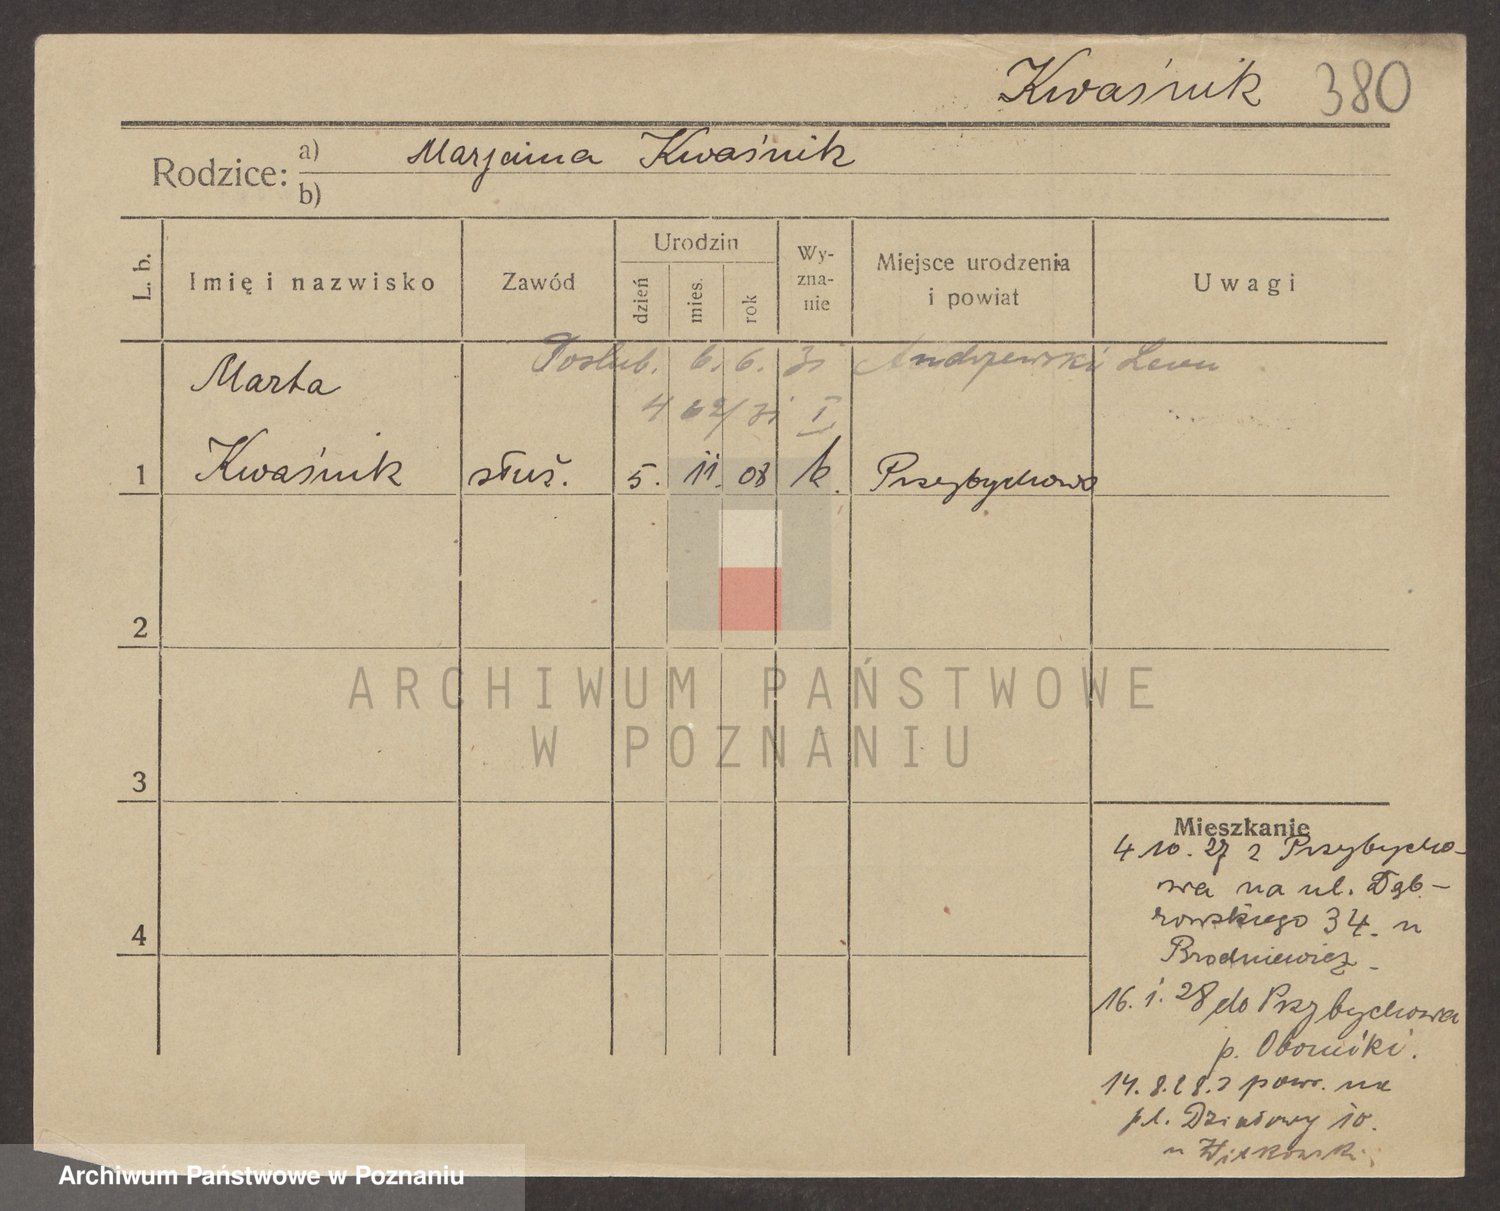 Kwaśnik 380
Rodzice: a) Marjanna Kwaśnik
b)
L. b.
Imię i nazwisko
Zawód
Urodzin
dzień
mies.
rok
Wy-
zna-
nie
Miejsce urodzenia
i powiat
Uwagi
Poślub. 6. 6. 31 Andrzejewski Leon
Marta
I
1 Kwaśnik służ. 5. 11. 08 k. Przybychowo
2
ARCHIWUM PAŃSTWOWE
W POZNANIU
3
Mieszkanie
4 10. 27 z Przybycho-
wa na ul. Dąb-
rowskiego 34. u
Brodniewicz
16. 1. 28 do Przybychowa
p. Oborniki.
4
14. 8. 28. z pow. na
pl. Działowy 10.
u
Archiwum Państwowe w Poznaniu